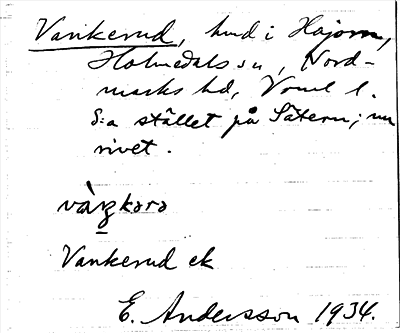 Vankerud, hmd i Hajom,
Holmedals sn, Nord-
marks hd, Vrml l.
S:a stället på Sätern; nu
rivet.
Vankerud ek
E. Andersson 1934.